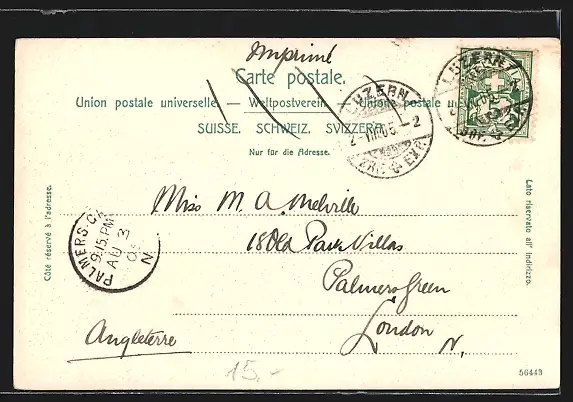 Imprimé
Carte postale.
Union postale universelle. — Weltpostverein. — Unione postale
SUISSE. SCHWEIZ. SVIZZERA.
Nur für die Adresse.
LUZERN
2-VIII.05.-2
BRF. EXP.
LUZERN
BRF. EXP.
Côté réservé à l'adresse.
Lato riservato all' indirizzo.
PALMERS. G
9.15.PM
AU 3
05
N
Miss M. A. Melville
18 Old Park Villas
Palmers Green
London N.
Angleterre
15.-
56443